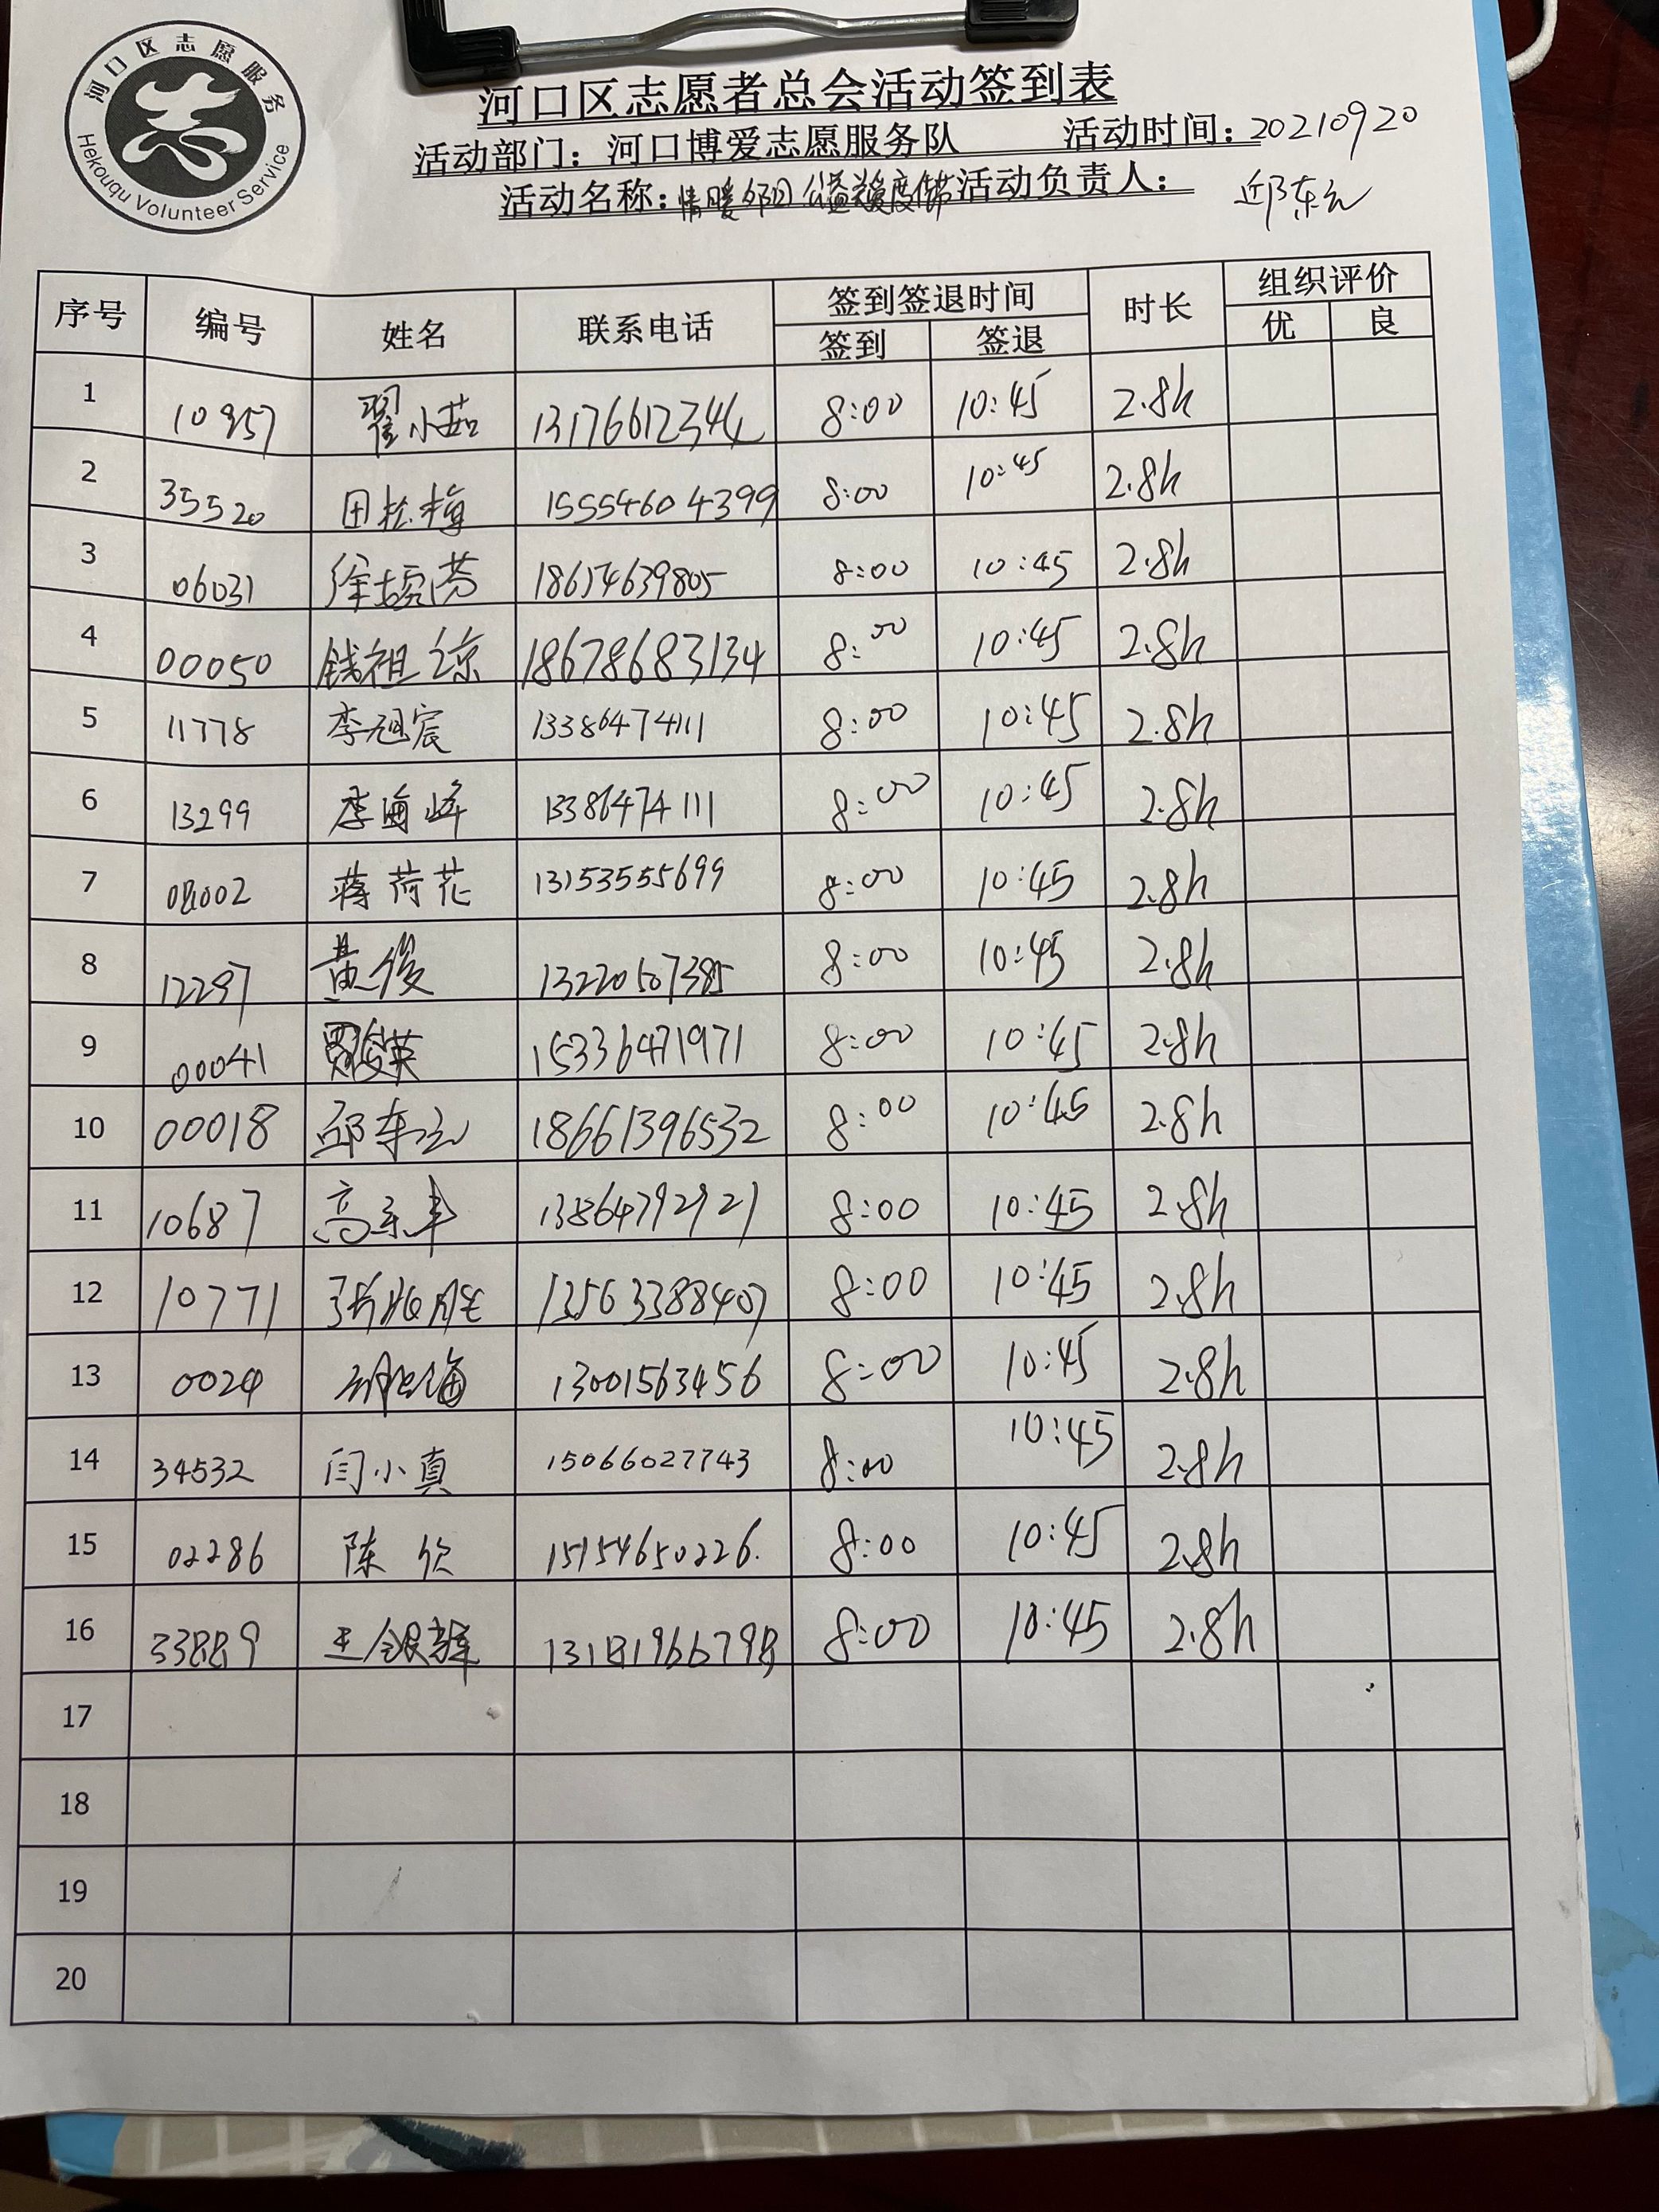 河口区志愿服务
Hekouqu Volunteer Service
河口区志愿者总会活动签到表
活动部门：河口博爱志愿服务队 活动时间：20210920
活动名称：情暖夕阳 公益 度佳节 活动负责人： 邱东云
序号 编号 姓名 联系电话 签到签退时间 时长 组织评价
签到 签退 优 良
1 10957 翟小茹 13176612344 8:00 10:45 2.8h
2 35520 田松梅 15554604399 8:00 10:45 2.8h
3 06031 徐 芬 18674639805 8:00 10:45 2.8h
4 00050 钱祖琼 18678683134 8:00 10:45 2.8h
5 11778 李旭宸 13386474111 8:00 10:45 2.8h
6 13299 李海峰 13386474111 8:00 10:45 2.8h
7 08002 蒋荷花 13153555699 8:00 10:45 2.8h
8 12297 黄俊 13220507385 8:00 10:45 2.8h
9 00041 贾俊英 15336471971 8:00 10:45 2.8h
10 00018 邱东云 18661396532 8:00 10:45 2.8h
11 10687 高东丰 13864792921 8:00 10:45 2.8h
12 10771 张 胜 13563388407 8:00 10:45 2.8h
13 0024 海 13001563456 8:00 10:45 2.8h
14 34532 闫小真 15066027743 8:00 10:45 2.8h
15 02286 陈欣 15154650226. 8:00 10:45 2.8h
16 33889 王银 13181966798 8:00 10:45 2.8h
17
18
19
20